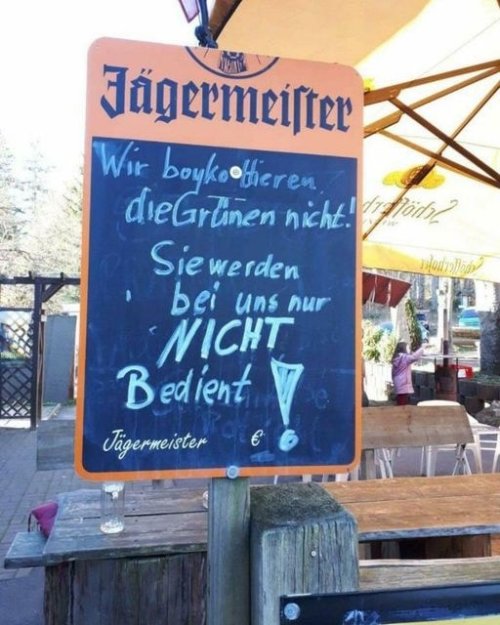 Jägermeister
Wir boykottieren
die Grünen nicht!
Sie werden
bei uns nur
NICHT
Bedient !
Jägermeister €
Schöfferhofer